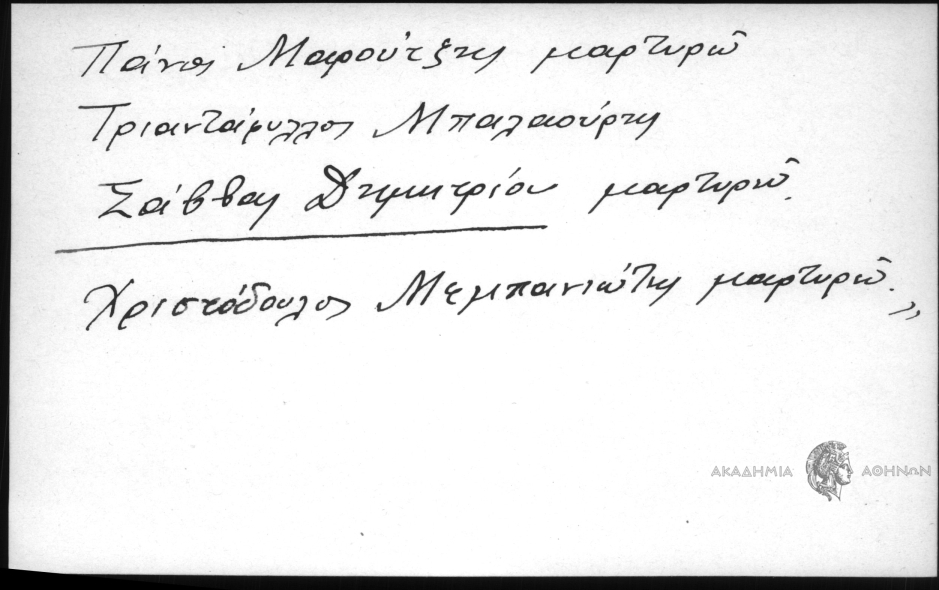 Πάνος Μαρούτζης μαρτυρῶ
Τριαντάφυλλος Μπαλαούρτης
Σάββας Δημητρίου μαρτυρῶ.
Χριστόδουλος Μεμπανιώτης μαρτυρῶ.»
ΑΚΑΔΗΜΙΑ ΑΘΗΝΩΝ